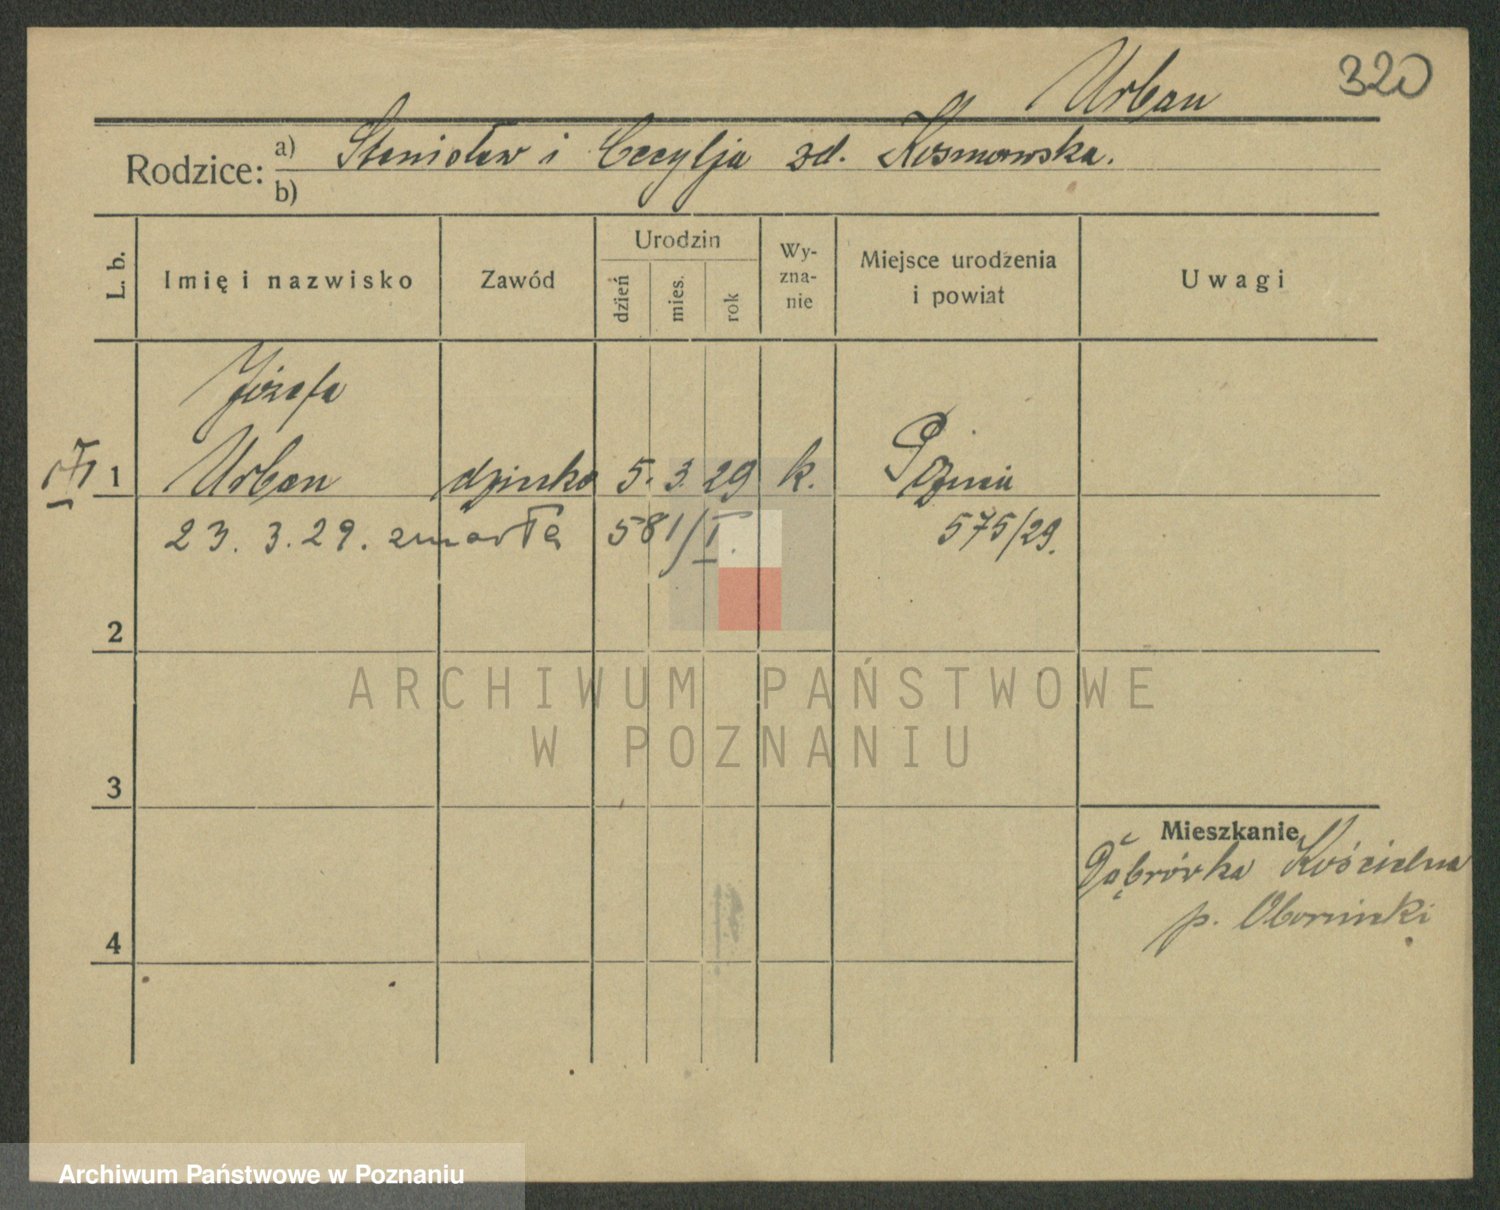 320
Urban
Rodzice: a) Stanisław i Cecylja zd. Kosmowska.
b)
L. b. Imię i nazwisko Zawód Urodzin dzień mies. rok Wy-zna-nie Miejsce urodzenia i powiat Uwagi
Józefa
1 Urban 5. 3. 29 k.
23. 3. 29. zmarła 581/I. 575/29.
2
ARCHIWUM PAŃSTWOWE
W POZNANIU
3
Mieszkanie
Dąbrówka Kościelna
p. Obornicki
4
Archiwum Państwowe w Poznaniu